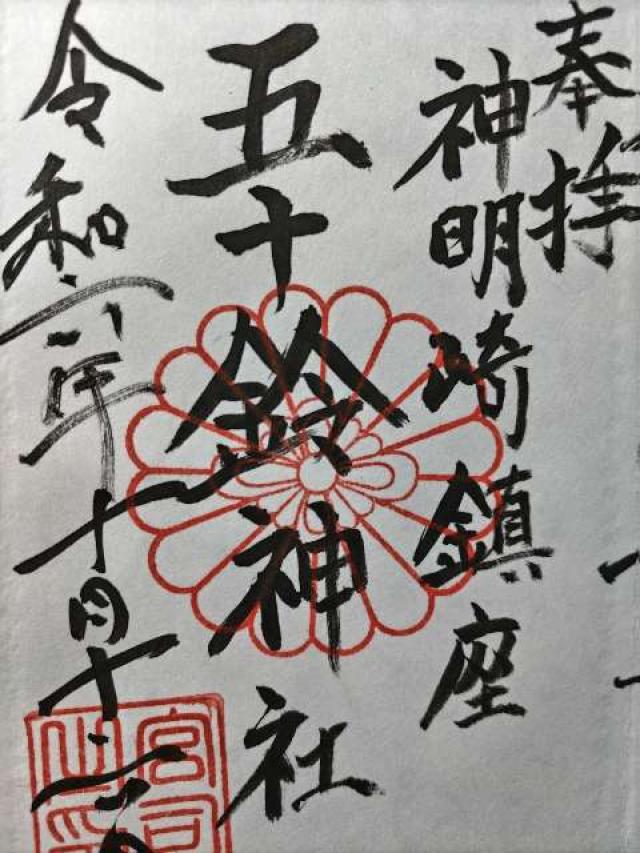 奉拝
神明崎鎮座
五十鈴神社
令和六年十月十二日
宮司
之印